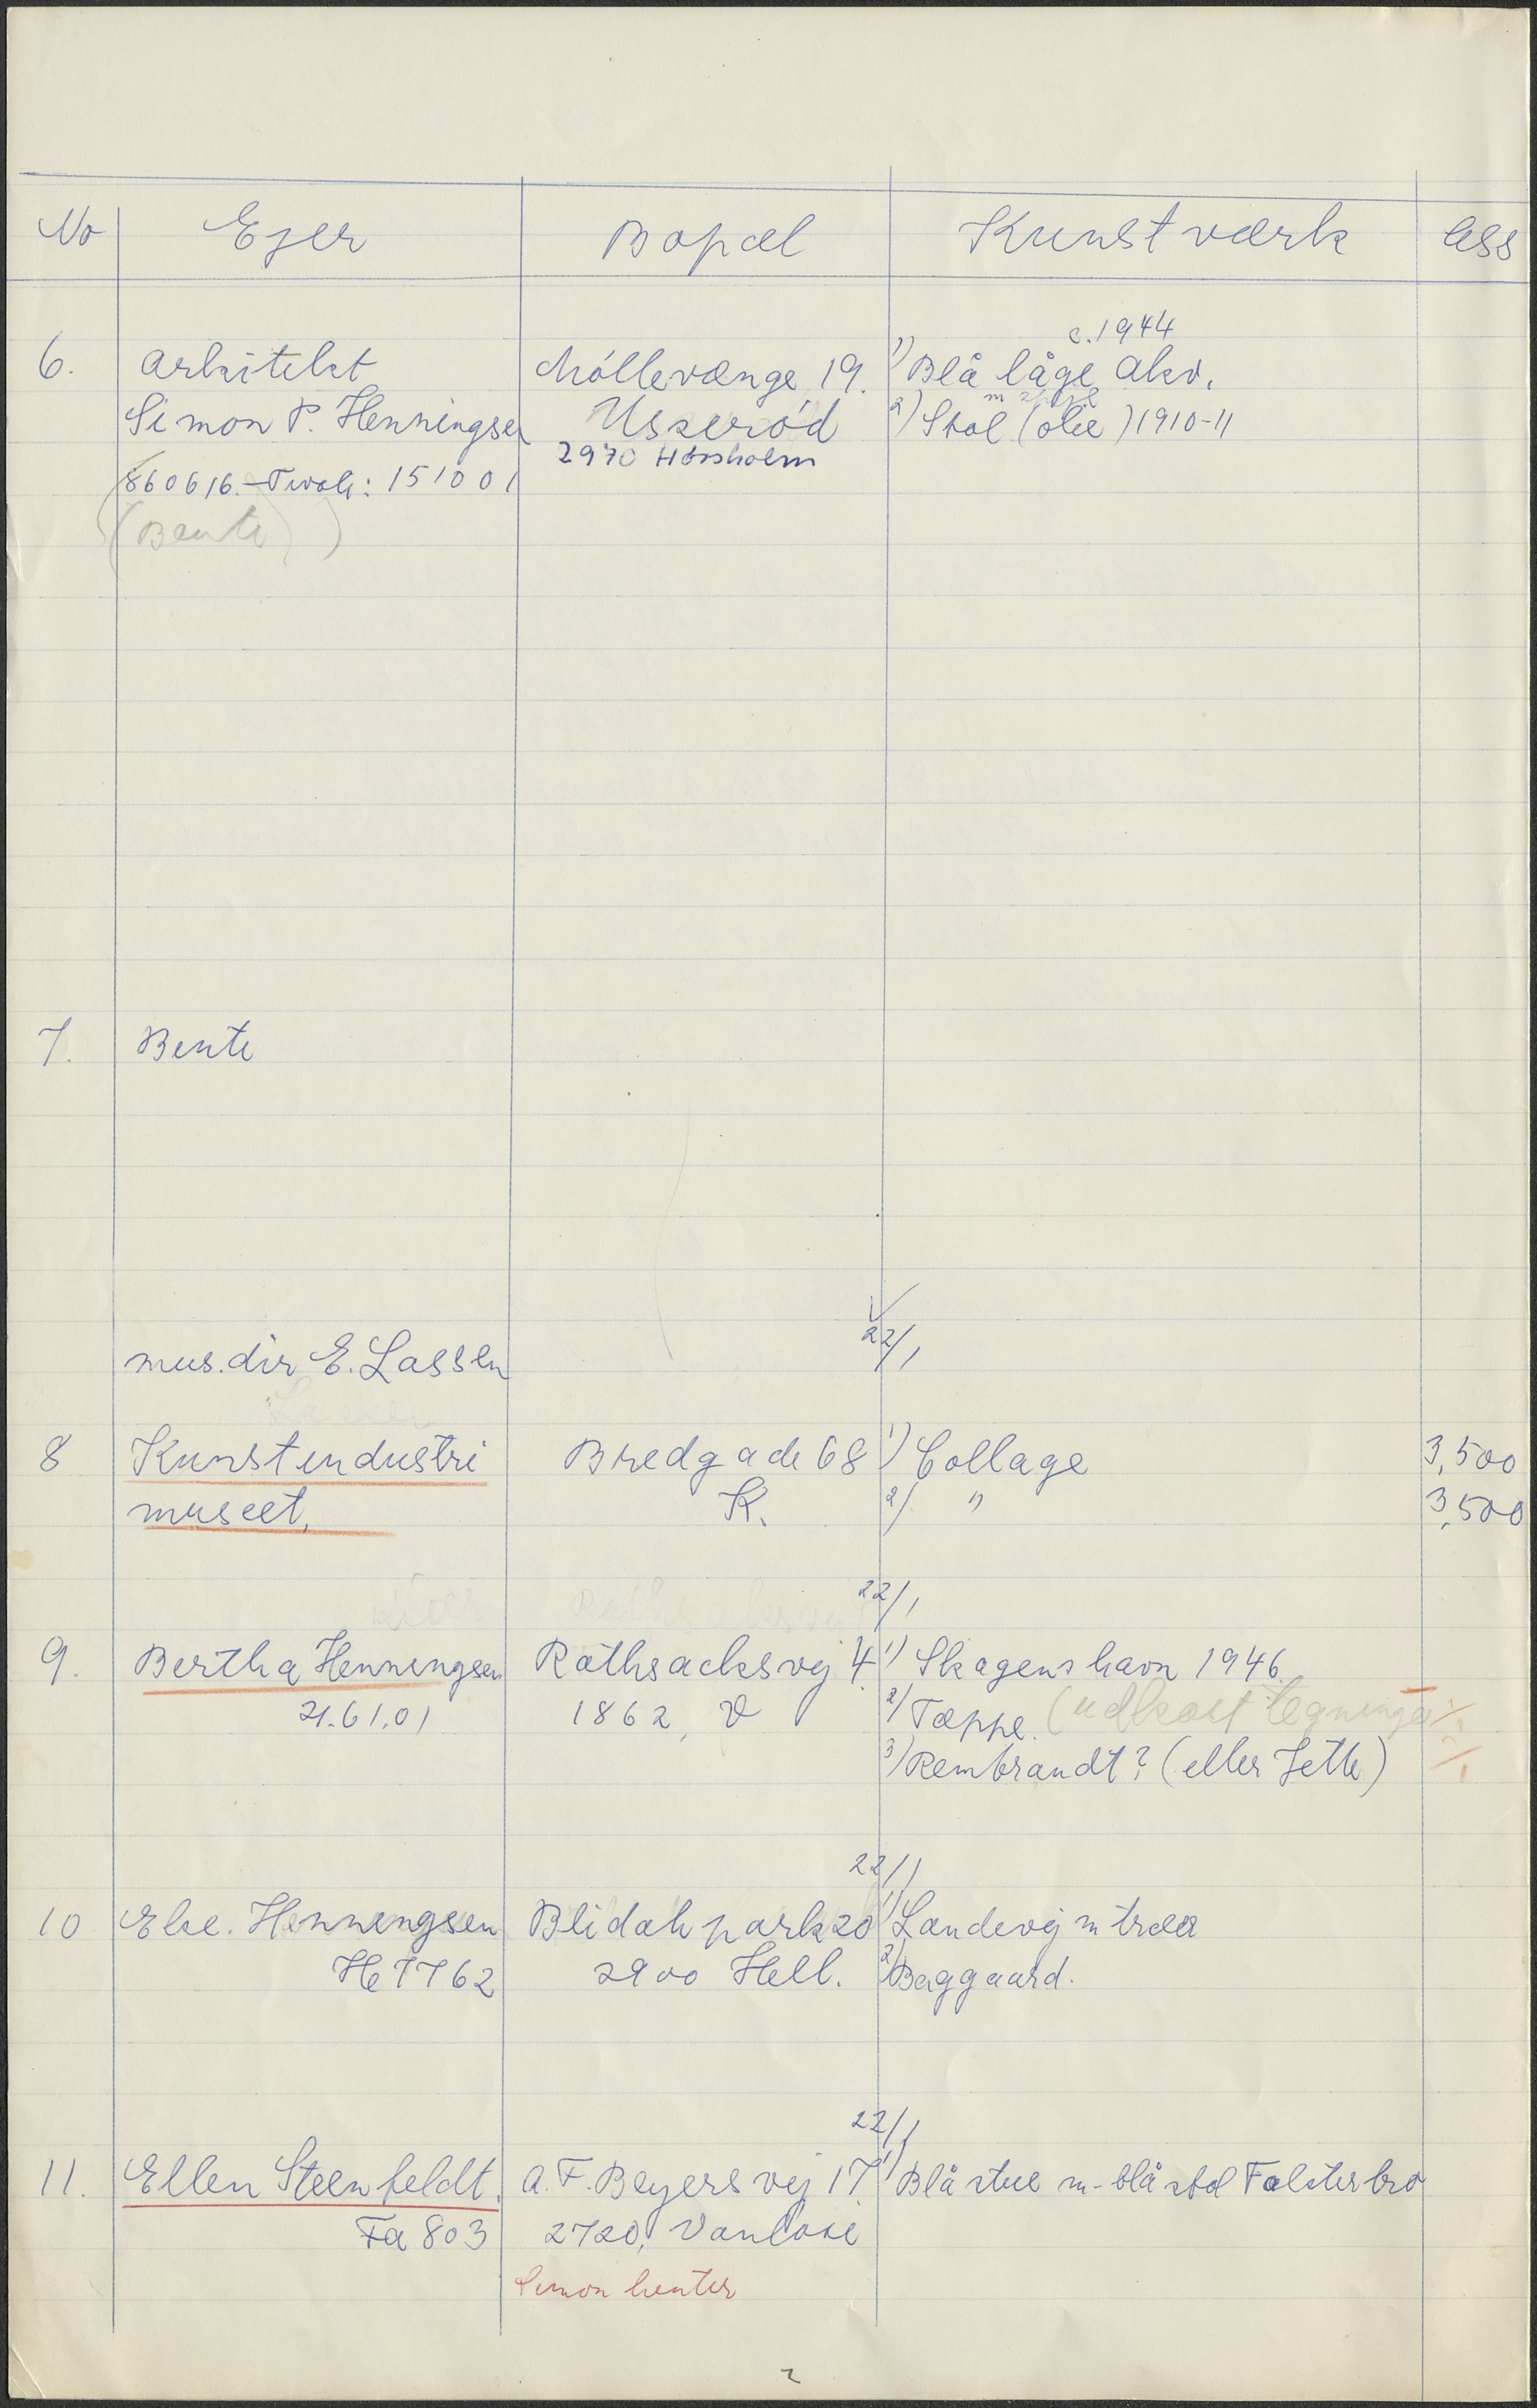 No Ejer Bopæl Kunstværk Ass
c. 1944
6. Arkitekt Móllevænge 19. 1) Blå låge akv.
Simon P. Henningsen Usseród 2) Stol (olie) 1910-11
860616. - Tivoli: 151001 2970 Hørsholm
(Bente)
7. Bente
22/1
mus. dir E. Lassen
8 Kunstindustri Bredgade 68 1) Collage 3,500
museet, K. 2) " 3,500
22/1
9. Bertha Henningsen Rathsacksvej 4. 1) Skagens havn 1946.
21.61.01 1862, V 2) Tæppe. (udkast tegninger
3) Rembrandt? (eller Jette)
22/1
10 Else. Henningsen Blidah park 20 1) Landevej m træer
He 7762 2900 Hell. 2) Baggaard.
22/1
11. Ellen Steenfeldt. A. F. Beyers vej 17. 1) Blå stue m. blå stol Falsterbro
Fa 803 2720, Vanløse
Simon henter
2